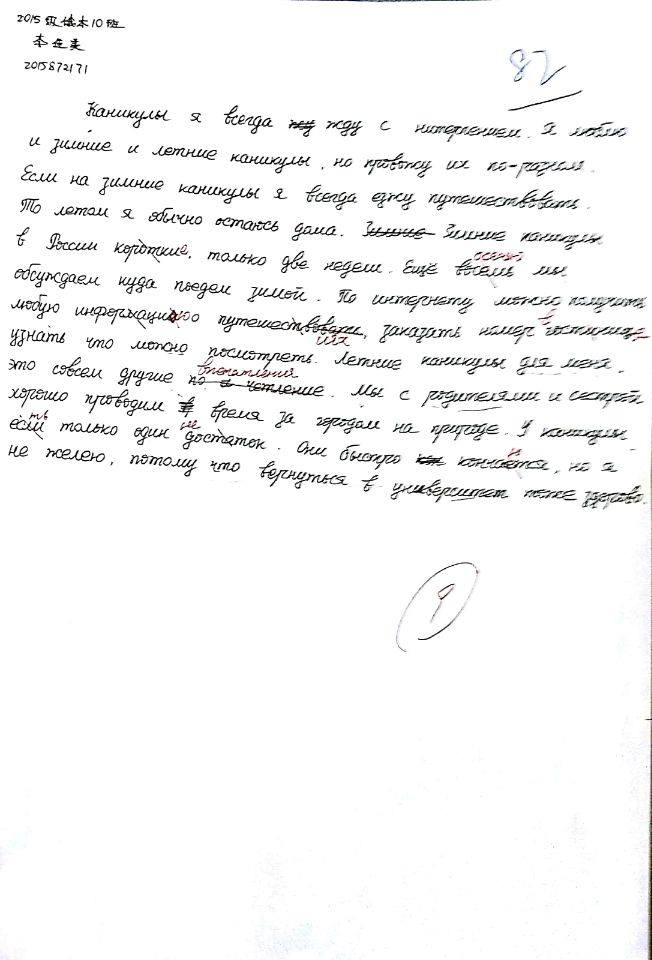 2015级 本10班
李在美
2015872171
82
Каникулы я всегда жду с нитерпением. Я люблю
и зимние и летние каникулы, но провожу их по-разном.
Если на зимние каникулы я всегда езжу путешествовать.
То летом я обычно остаюсь дома. Зимние Зимние каникулы
в России короткие, только две недели. Ещё восемь осенью мы
обсуждаем куда поедем зимой. По интернету можно получить
любую информацию о путешествовати, заказать номер в гостинице,
узнать что можно посмотреть. Летние каникулы для меня.
это совсем другие впечатления. Мы с родителями и сестрой
хорошо проводим время за городам на природе. У каникулы
есть только один недостаток. Они быстро кончается, но я
не желею, потому что вернуться в университет тоже здорово.
9